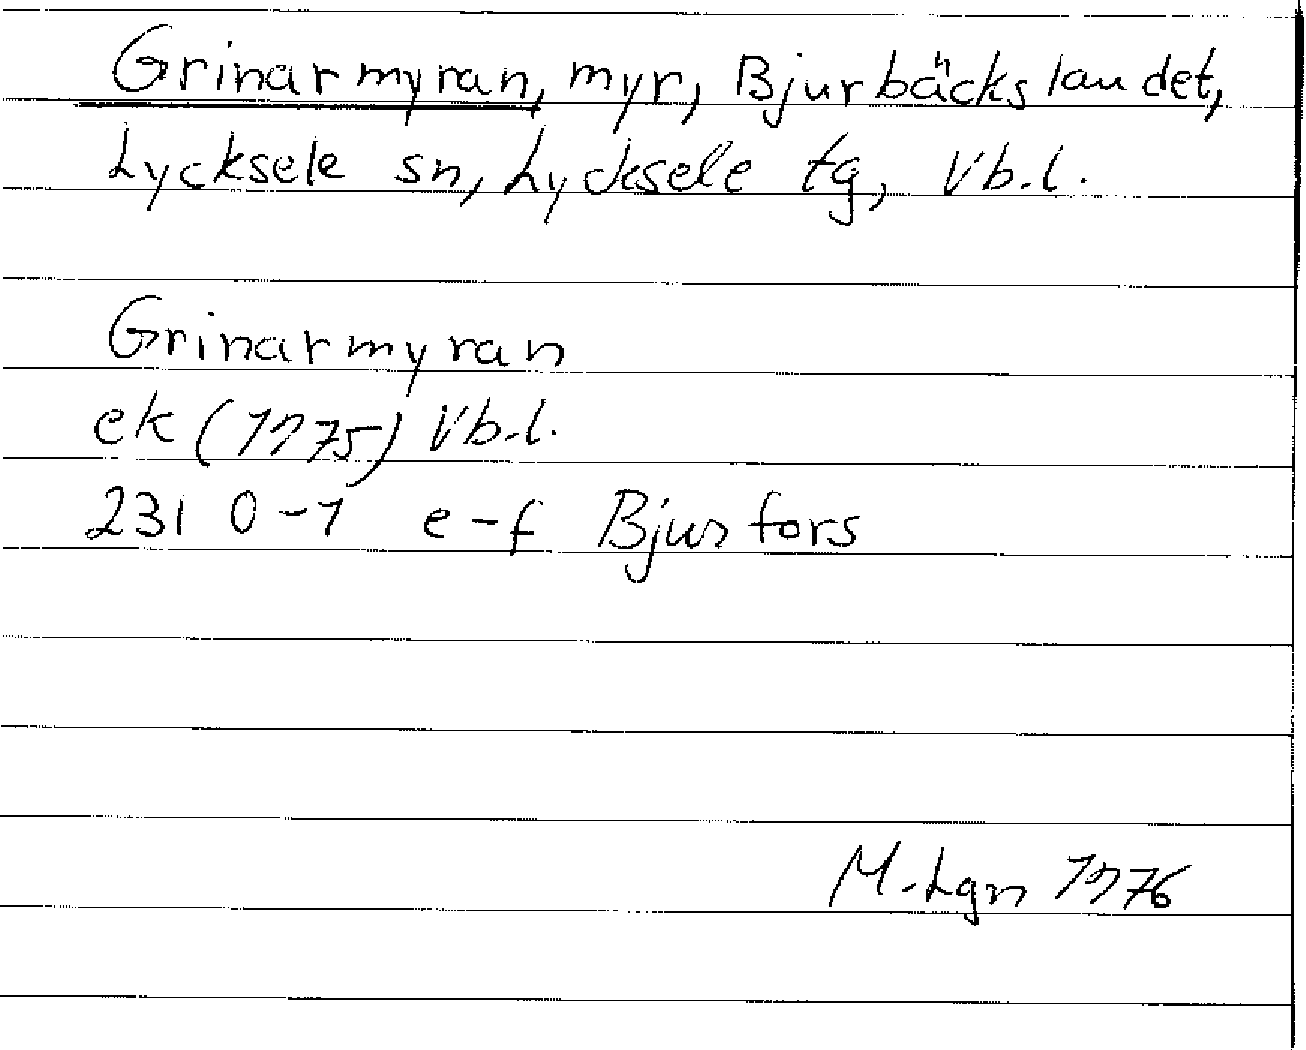 Grinarmyran, myr, Bjurbäckslandet,
Lycksele sn, Lycksele tg, Vb.l.
Grinarmyran
ek (1975) Vb.l.
23I 0-1 e-f Bjurfors
M. Lgn 1976